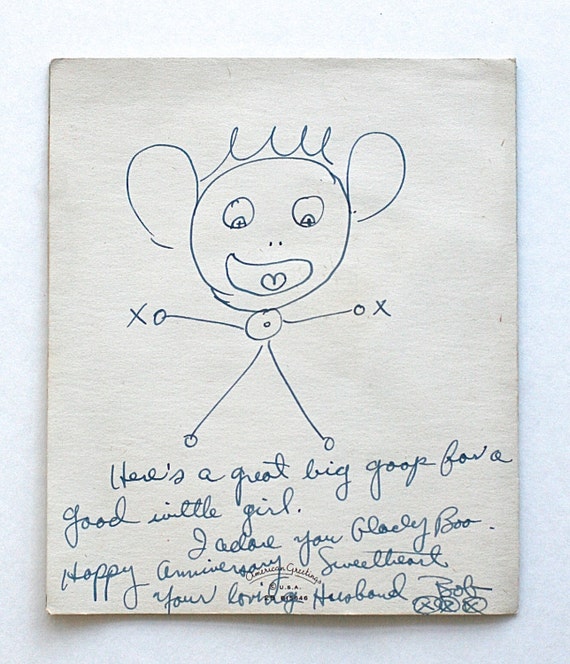 X X
Here's a great big goop for a
good wittle girl.
I adore you Glady Boo.
Happy Anniversary Sweetheart
American Greetings
U.S.A.
Your loving Husband Bob
XXX